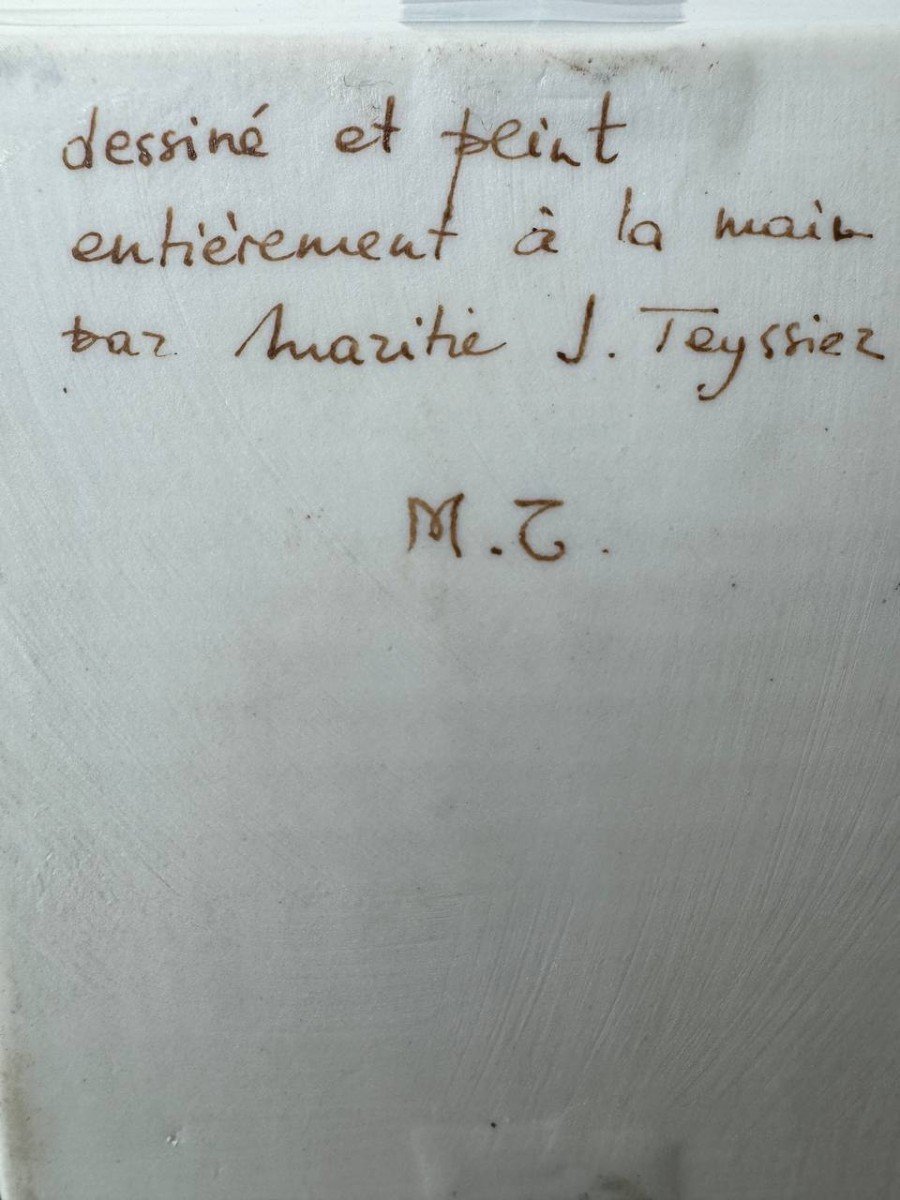 dessiné et peint
entièrement à la main
par Maritie J. Teyssier
M.T.